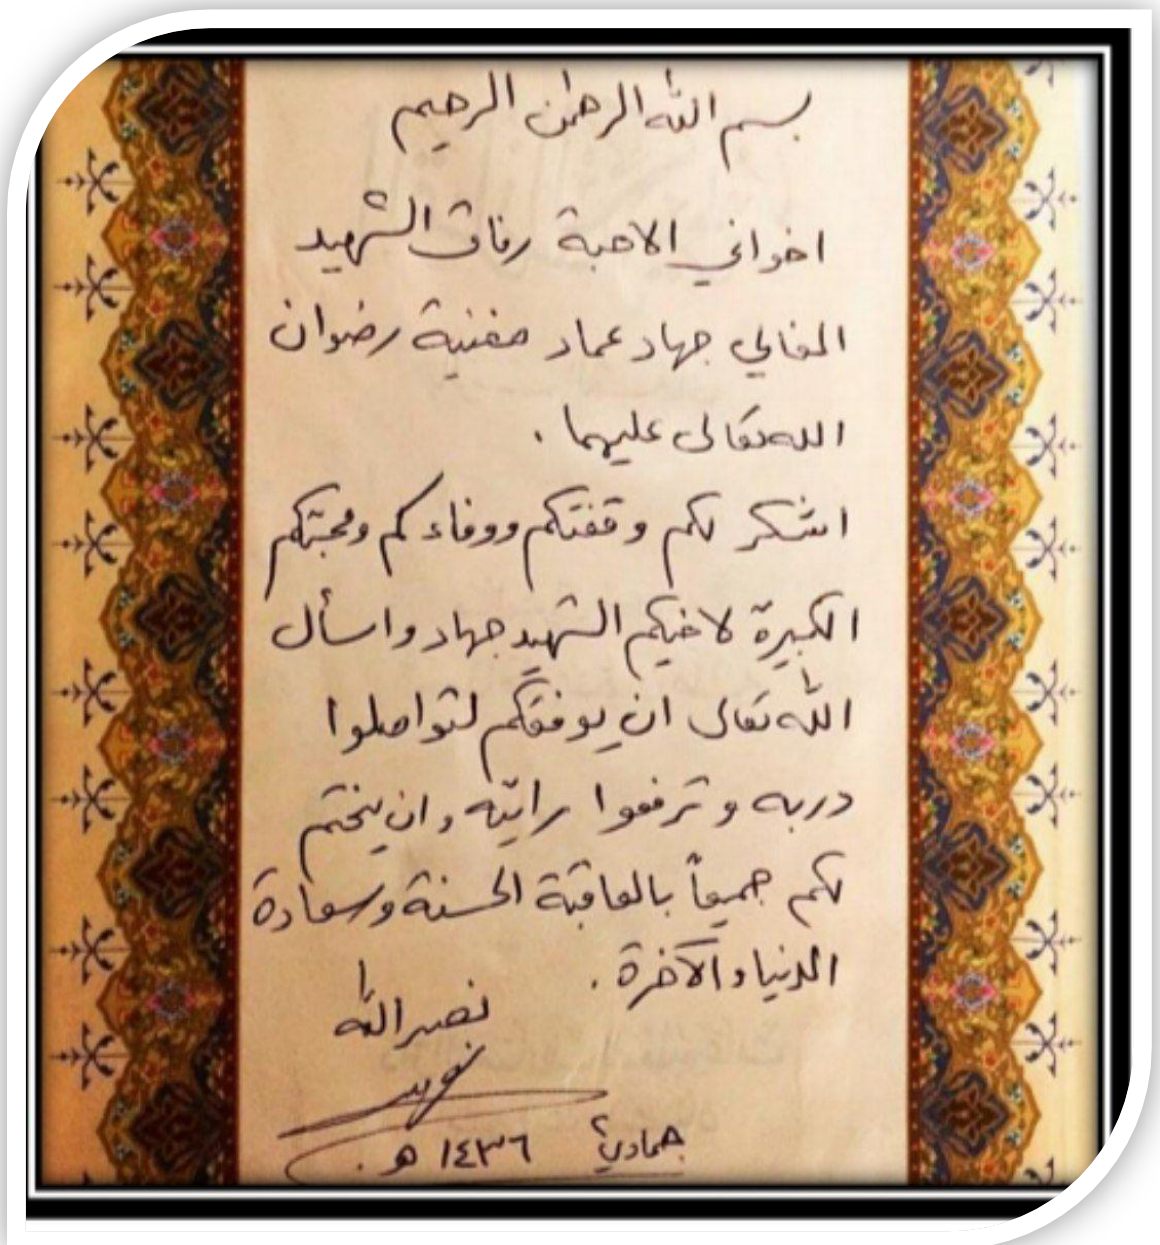 بسم الله الرحمن الرحيم
اخواني الاحبة رفاق الشهيد
الغالي جهاد عماد مغنية رضوان
الله تعالى عليهما .
اشكر لكم وقفتكم ووفاءكم ومحبتكم
الكبيرة لاخيكم الشهيد جهاد واسأل
الله تعالى ان يوفقكم لتواصلوا
دربه وترفعوا رايته وان يختم
لكم جميعاً بالعاقبة الحسنة وسعادة
الدنيا والآخرة .
نصر الله
جمادى ١٤٣٦ هـ